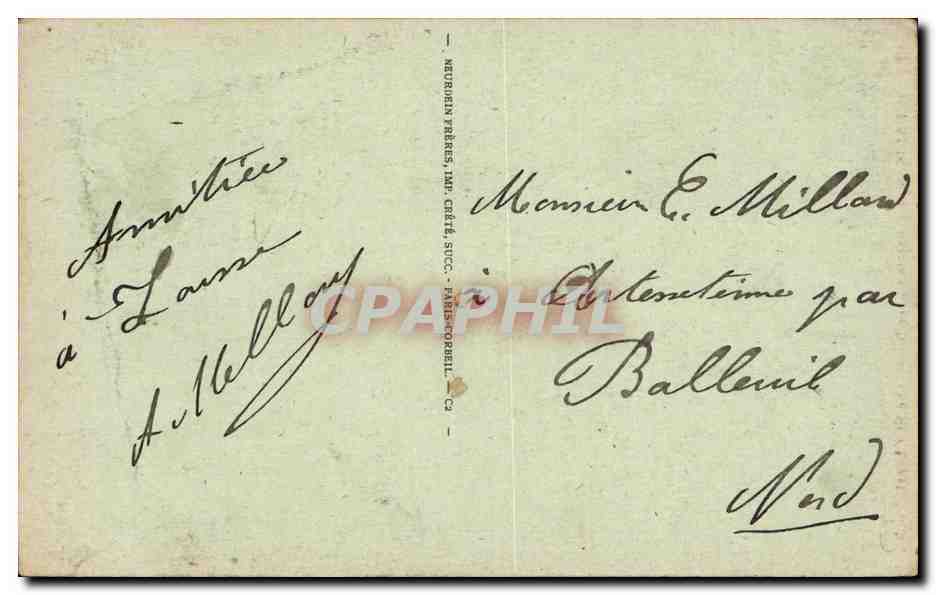 Amitiée
à
A Millon
NEURDEIN FRÈRES, IMP. CRÉTÉ, SUCC. - PARIS-CORBEIL. — C2
CPAPHIL
Monsieur E. Millon
à par
Bailleul
Nord